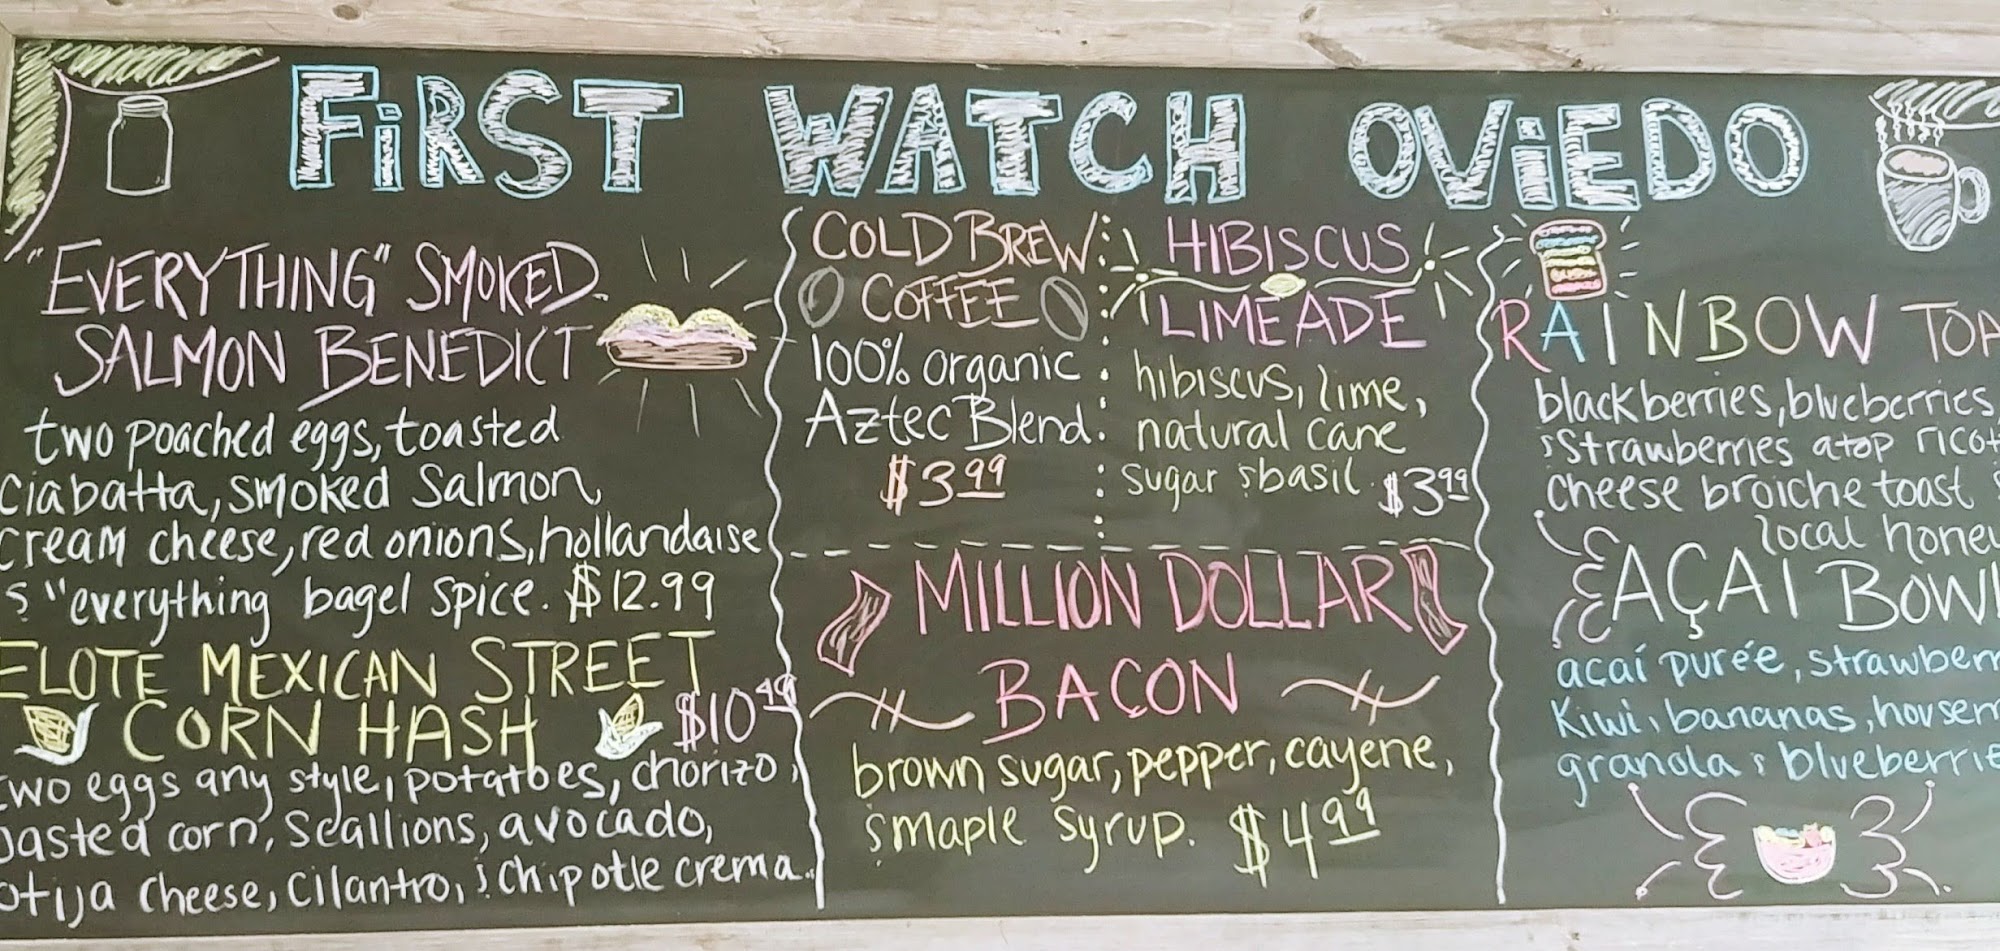 FiRST WATCH OViEDO
"EVERYTHING" SMOKED
SALMON BENEDICT
two poached eggs, toasted
ciabatta, smoked salmon,
cream cheese, red onions, hollandaise
& "everything bagel spice. $12.99
ELOTE MEXICAN STREET
CORN HASH $10.49
two eggs any style, potatoes, chorizo,
oasted corn, scallions, avocado,
otija cheese, cilantro, & chipotle crema.
COLD BREW
COFFEE
100% organic
Aztec Blend
$3.99
HIBISCUS
LIMEADE
hibiscus, lime,
natural cane
sugar & basil. $3.99
MILLION DOLLAR
BACON
brown sugar, pepper, cayene,
& maple syrup. $4.99
RAINBOW TOA
blackberries, blueberries,
& strawberries atop ricot
cheese broiche toast &
local honey
AÇAI BOWL
açaí purée, strawberr
kiwi, bananas, housem
granola & blueberrie